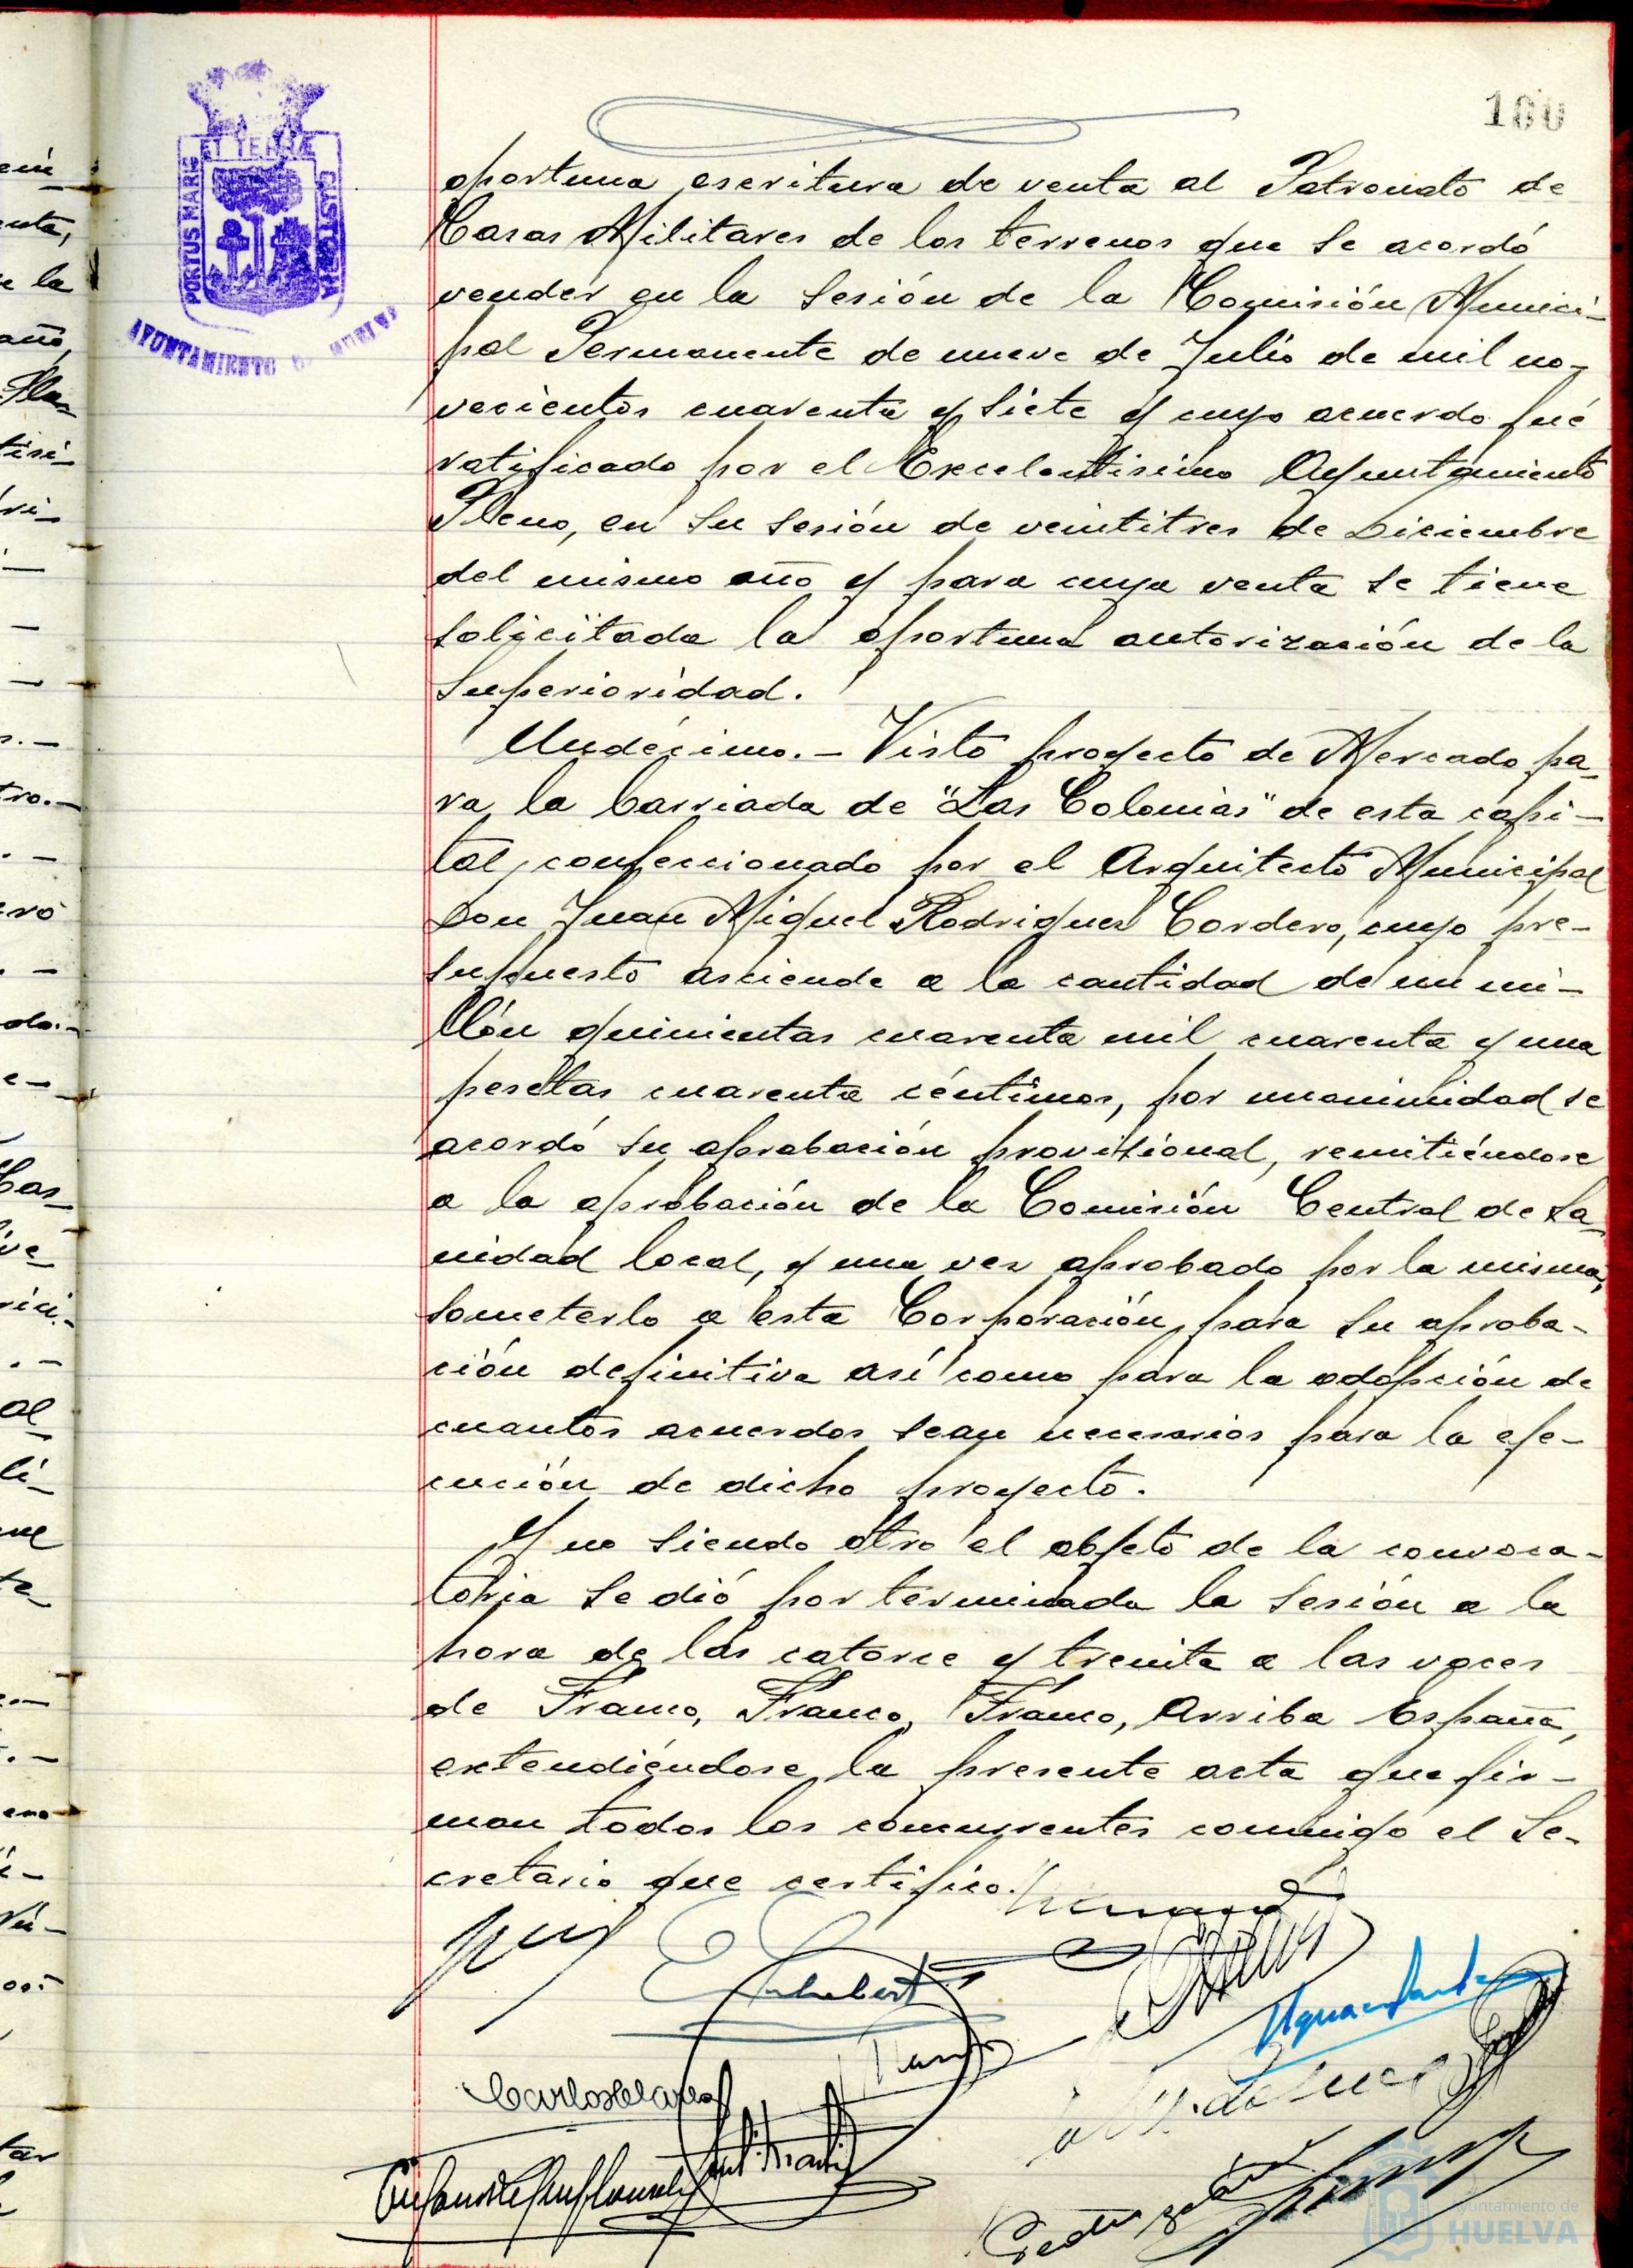 100
PORTUS MARIS
ET TERRÆ
CUSTODIA
AYUNTAMIENTO DE HUELVA
oportuna escritura de venta al Patronato de
Casas Militares de los terrenos que se acordó
vender en la Sesión de la Comisión Munici-
pal Permanente de nueve de Julio de mil no-
vecientos cuarenta y siete y cuyo acuerdo fué
ratificado por el Excelentísimo Ayuntamiento
Pleno, en su sesión de veintitres de Diciembre
del mismo año y para cuya venta se tiene
solicitada la oportuna autorización de la
Superioridad.
Undécimo.- Visto proyecto de Mercado pa-
ra la barriada de "Las Colonias" de esta capi-
tal, confeccionado por el Arquitecto Municipal
Don Juan Miguel Rodriguez Cordero, cuyo pre-
supuesto asciende a la cantidad de un mi-
llón quinientas cuarenta mil cuarenta y una
pesetas cuarenta céntimos, por unanimidad se
acordó su aprobación provisional, remitiéndose
a la aprobación de la Comisión Central de Sa-
nidad local, y una vez aprobado por la misma,
someterlo a esta Corporación, para su aproba-
ción definitiva así como para la adopción de
cuantos acuerdos sean necesarios para la eje-
cución de dicho proyecto.
Y no siendo otro el objeto de la convoca-
toria se dió por terminada la Sesión a la
hora de las catorce y treinta a las voces
de Franco, Franco, Franco, Arriba España,
extendiéndose la presente acta que fir-
man todos los concurrentes conmigo el Se-
cretario que certifico.
Ayuntamiento de
HUELVA